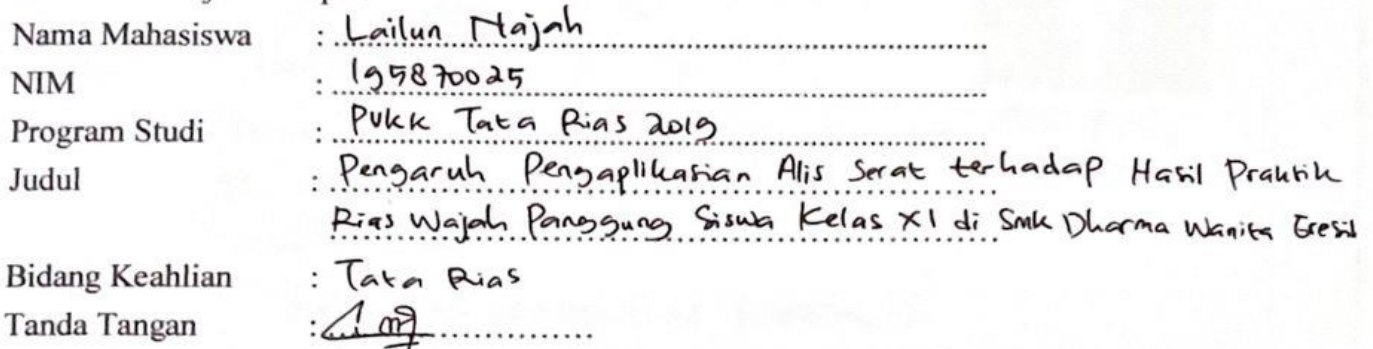 Nama Mahasiswa : Lailun Najah
NIM : 195870025
Program Studi : PVKK Tata Rias 2019
Judul : Pengaruh Pengaplikasian Alis Serat terhadap Hasil Praktik
Rias Wajah Panggung Siswa Kelas XI di Smk Dharma Wanita Gresik
Bidang Keahlian : Tata Rias
Tanda Tangan :